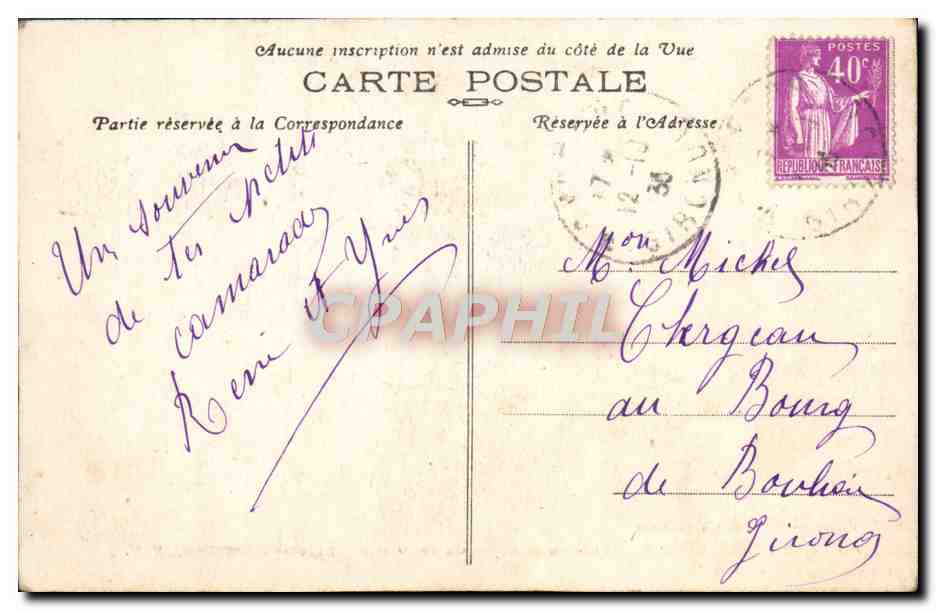 Aucune inscription n'est admise du côté de la Vue
CARTE POSTALE
Partie réservée à la Correspondance
Réservée à l'Adresse
POSTES
40 c
REPUBLIQUE FRANÇAISE
17 12-10 36
GIRONDE
Un souvenir
de tes petits
camarades
René et Yves
Mon Michel
Chergeau
au Bourg
de
Gironde
CPAPHIL